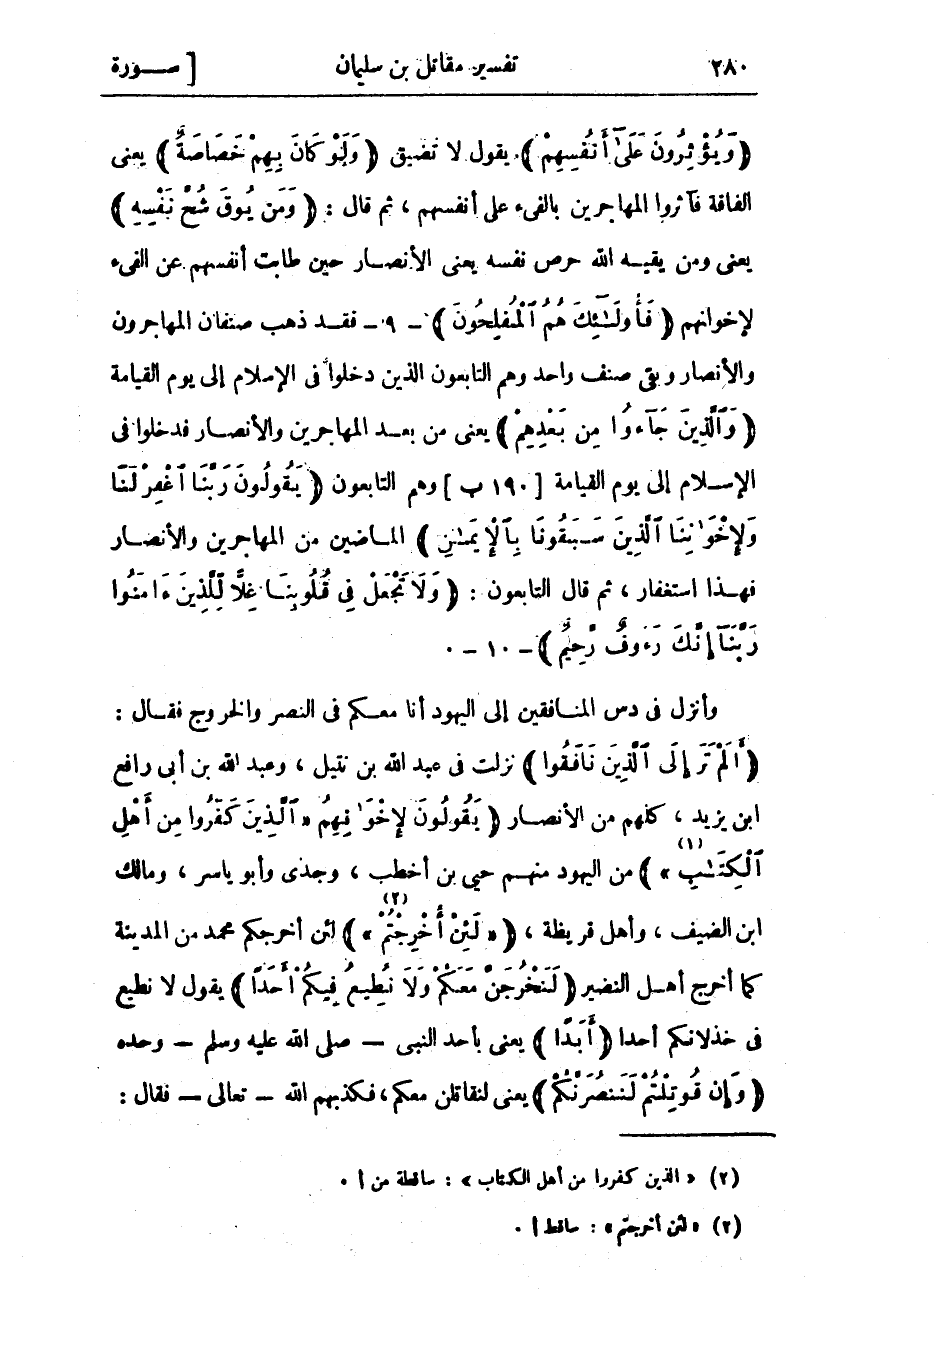 ٢٨٠ تفسير مقاتل بن سليمان [ ســورة
( وَيُؤْثِرُونَ عَلَىٰٓ أَنفُسِهِمْ ) يقول لا تضيق ( وَلَوْ كَانَ بِهِمْ خَصَاصَةٌ ) يعنى
الفاقة فآثروا المهاجرين بالفىء على أنفسهم ، ثم قال : ( وَمَن يُوقَ شُحَّ نَفْسِهِ )
يعنى ومن يقيــه الله حرص نفسه يعنى الأنصــار حين طابت أنفسهم عن الفىء
لإخوانهم ( فَأُولَـٰٓئِكَ هُمُ ٱلْمُفْلِحُونَ ) - ٩ - فقــد ذهب صنفان المهاجرون
والأنصار وبقى صنف واحد وهم التابعون الذين دخلوا فى الإسلام إلى يوم القيامة
( وَٱلَّذِينَ جَآءُوا مِن بَعْدِهِمْ ) يعنى من بعــد المهاجرين والأنصــار فدخلوا فى
الإســلام إلى يوم القيامة [ ١٩٠ ب ] وهم التابعون ( يَقُولُونَ رَبَّنَا ٱغْفِرْ لَنَا
وَلِإِخْوَٰنِنَا ٱلَّذِينَ سَبَقُونَا بِٱلْإِيمَـٰنِ ) المــاضين من المهاجرين والأنصــار
فهــذا استغفار ، ثم قال التابعون : ( وَلَا تَجْعَلْ فِى قُلُوبِنَا غِلًّا لِّلَّذِينَ ءَامَنُوا
رَبَّنَآ إِنَّكَ رَءُوفٌ رَّحِيمٌ ) - ١٠ - .
وأنزل فى دس المنــافقين إلى اليهود أنا معــكم فى النصر والخروج فقــال :
( أَلَمْ تَرَ إِلَى ٱلَّذِينَ نَافَقُوا ) نزلت فى عبد الله بن نتيل ، وعبد الله بن أبى رافع
ابن يزيد ، كلهم من الأنصــار ( يَقُولُونَ لِإِخْوَٰنِهِمُ « ٱلَّذِينَ كَفَرُوا مِن أَهْلِ
ٱلْكِتَـٰبِ » (١) ) من اليهود منهــم حيى بن أخطب ، وجدى وأبو ياسر ، ومالك
ابن الضيف ، وأهل قريظة ، ( « لَئِنْ أُخْرِجْتُمْ » (٢) ) لئن أخرجكم محمد من المدينة
كما أخرج أهــل النضير ( لَنَخْرُجَنَّ مَعَكُمْ وَلَا نُطِيعُ فِيكُمْ أَحَدًا ) يقول لا نطيع
فى خذلانكم أحدا ( أَبَدًا ) يعنى بأحد النبى — صلى الله عليه وسلم — وحده
( وَإِن قُوتِلْتُمْ لَنَنصُرَنَّكُمْ ) يعنى لنقاتلن معكم ، فكذبهم الله — تعالى — فقال :
(٢) « الذين كفروا من أهل الكتاب » : ساقطة من أ .
(٢) « لئن أخرجتم » : ساقط أ .